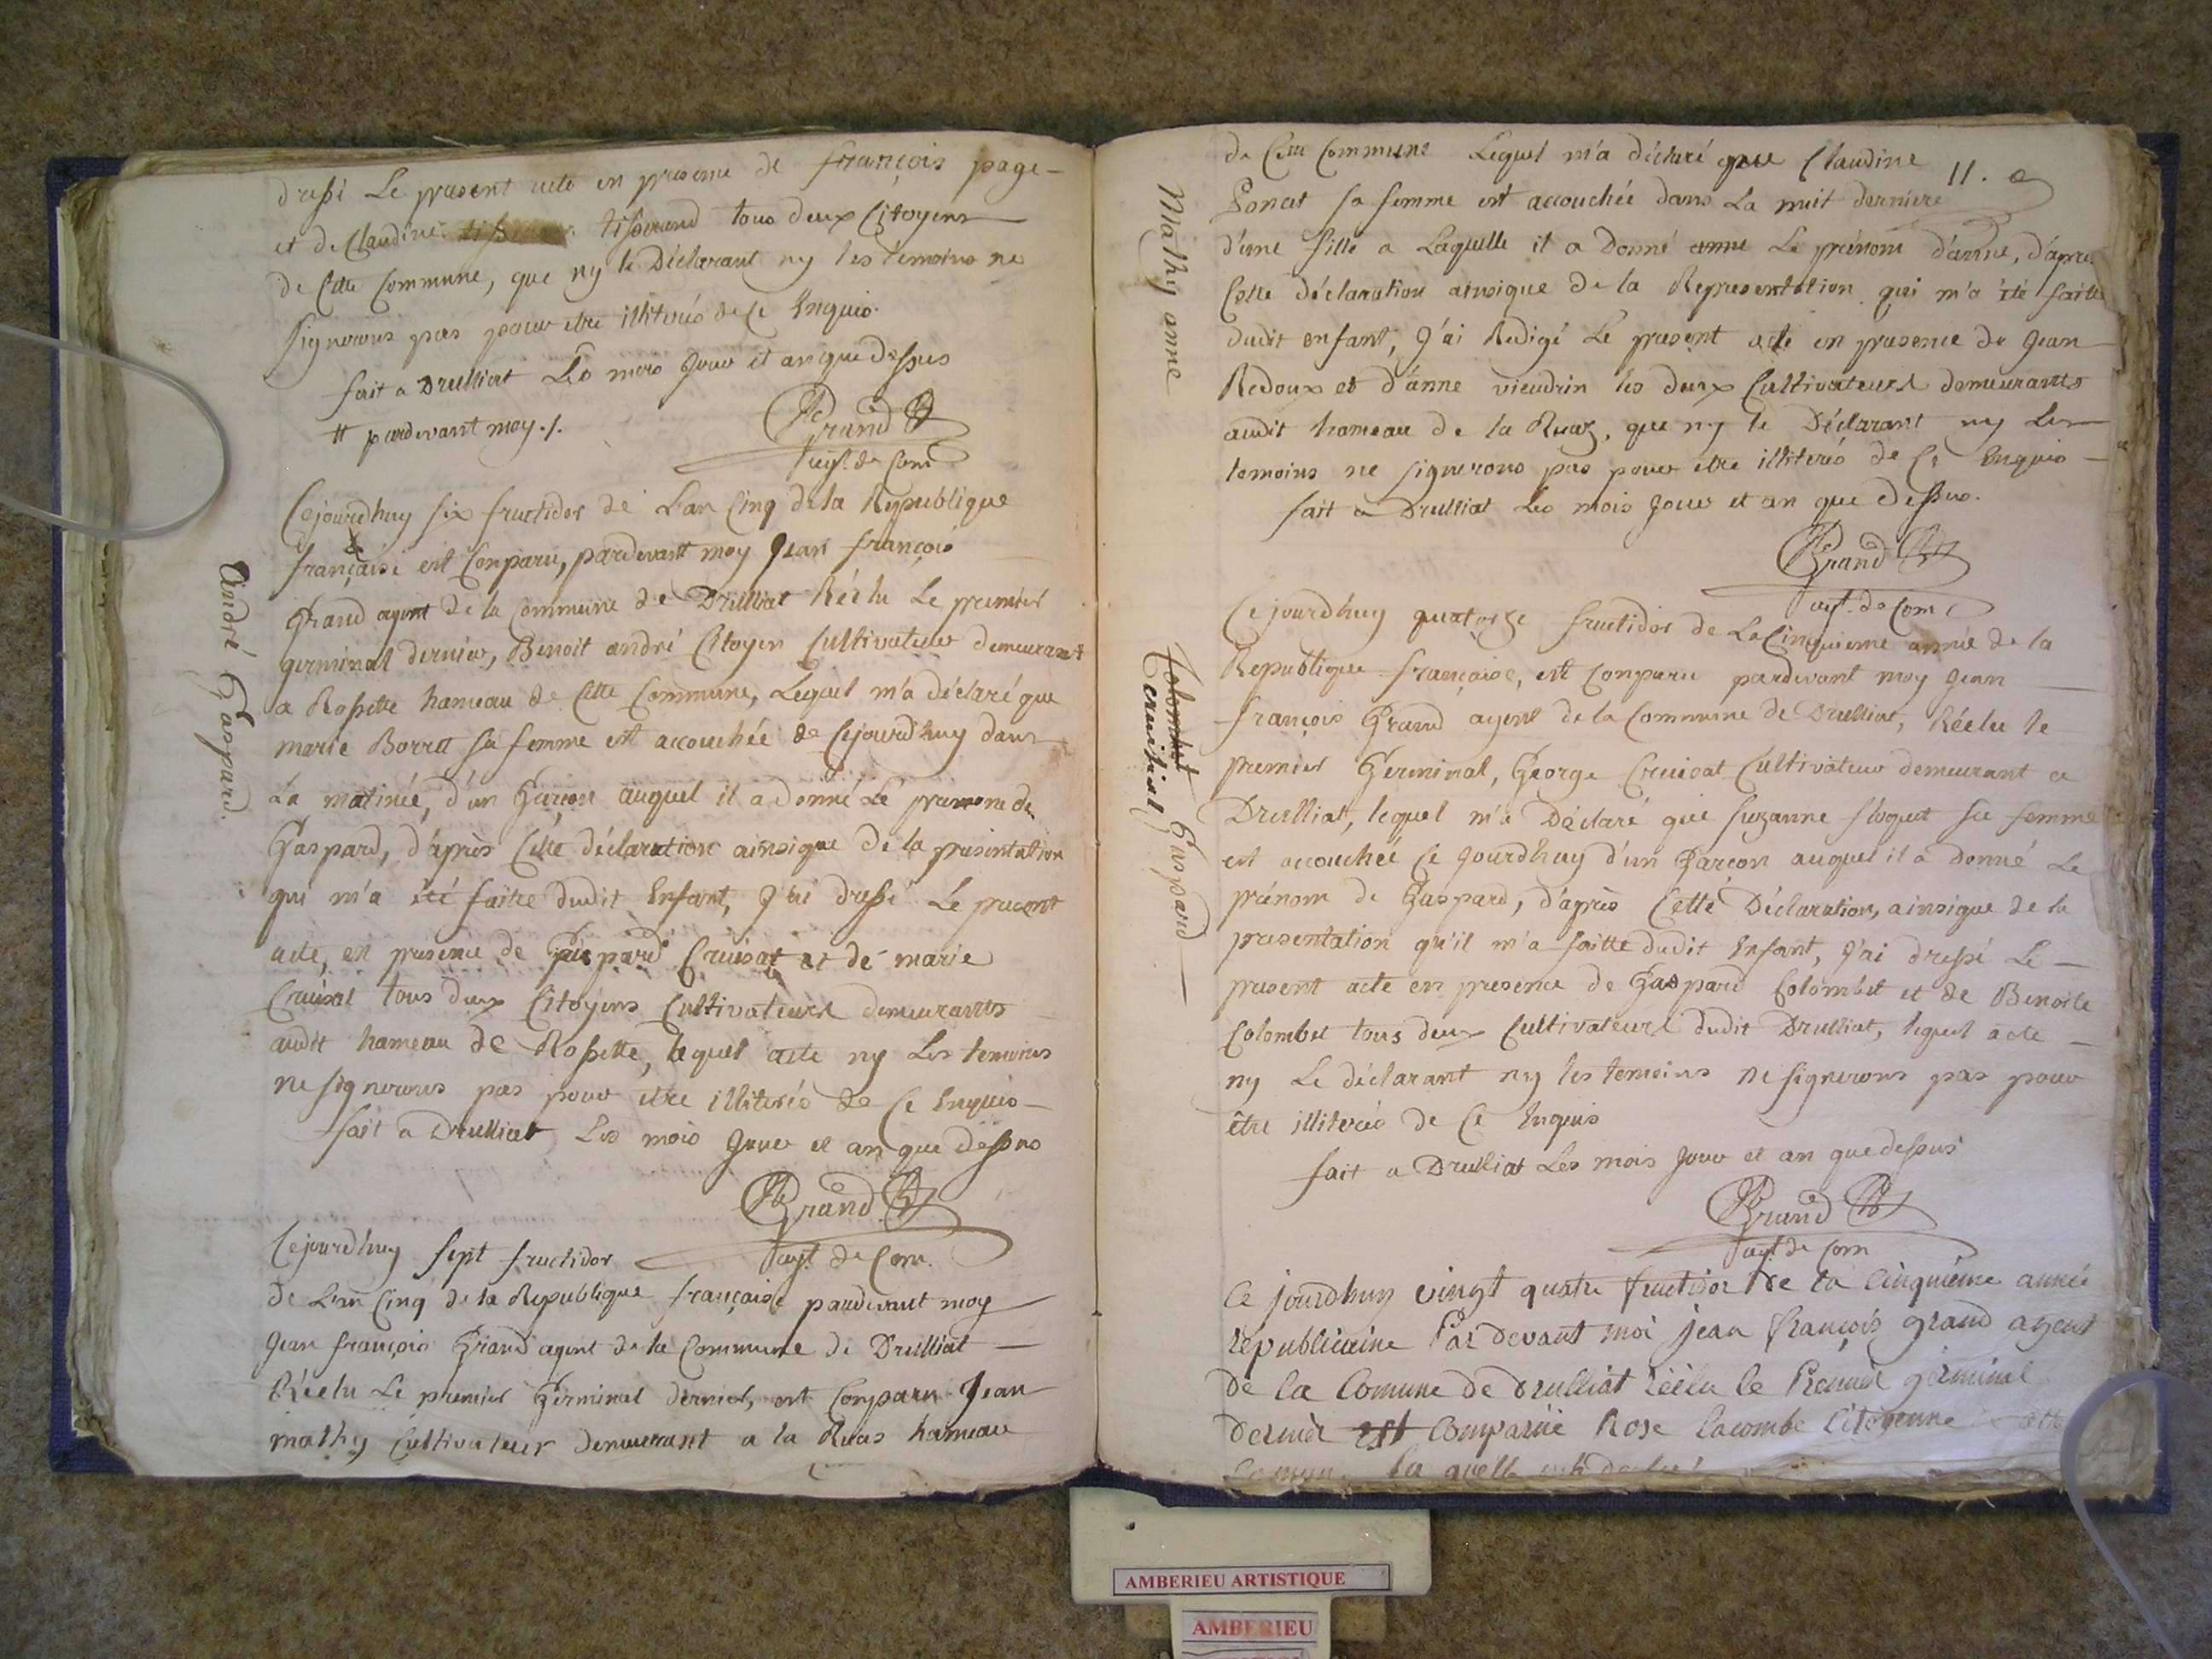 dressé Le present acte en presence de françois page-
et de Claudine tisserand tous deux Citoyens
de Cette Commune, que ny le Déclarant ny les temoins ne
signerons pas pour etre illiterés de Ce Enquis.
fait a Drulliat Les mois Jour et an que dessus
# pardevant moy./.
Grand
agt. de Com
Cejourdhuy six fructidor de L'an Cinq de la Republique
française est Conparu, pardevant moy Jean françois
Grand agent de la Commune de Drulliat Réélu Le premier
germinal dernier, Benoit andré Citoyen Cultivateur demeurant
a Rossette hameau de Cette Commune, Lequel m'a déclaré que
marie Borrat sa femme est accouchée de Cejourdhuy dans
La matinée, d'un Garçon auquel il a donné Le prenom de
Gaspard, d'après Cette déclaration ainsique de la présentation
qui m'a été faitte dudit Enfant, J'ai dressé Le present
acte, en presence de Gaspard Cruisat et de marie
Cruisat tous deux Citoyens Cultivateurs demeurants
audit hameau de Rossette, lequel acte ny Les temoins
ne signerons pas pour etre illiterés de Ce Enquis-
fait a Drulliat Les mois Jour et an que dessus
Grand
agt. de Com.
André Gaspard.
Cejourdhuy sept fructidor
de L'an Cinq de la Republique française pardevant moy
Jean françois Grand agent de la Commune de Drulliat
Réélu Le premier Germinal dernier, est Conparu Jean
mathy Cultivateur demeurant a la Ruas hameau
11.
de Cette Commune Lequel m'a déclaré que Claudine
Ponat sa femme est accouchée dans La nuit derniere
d'une fille a Laquelle il a donné anne Le prénom d'anne, d'apres
Cette déclaration ainsique de la Representation qui m'a été faitte
dudit enfant, J'ai Redigé Le present acte en presence de Jean
Redoux et d'anne vieudrin les deux Cultivateurs demeurants
audit hameau de la Ruaz, que ny le Déclarant ny Les
temoins ne signerons pas pour etre illiterés de Ce Enquis
fait a Drulliat Les mois Jour et an que dessus.
Grand
agt. de Com
Mathy anne
Ce jourdhuy quatorze fructidor de La Cinquieme année de la
Republique française, est Conparu pardevant moy Jean
françois Grand agent de la Commune de Drulliat, Réélu le
premier Germinal, George Cruisat Cultivateur demeurant a
Drulliat, lequel m'a Déclaré que Suzanne floquet sa femme
est accouchée Ce Jourdhuy d'un Garcon auquel il a donné Le
prénom de Gaspard, d'après Cette Déclaration, ainsique de la
presentation qu'il m'a faitte dudit Enfant, J'ai dressé Le
present acte en presence de Gaspard Colombet et de Benoite
Colombet tous deux Cultivateurs dudit Drulliat, lequel acte
ny Le déclarant ny les temoins ne signerons pas pour
être illiterés de Ce Enquis
fait a Drulliat Les mois Jour et an que dessus
Grand
agt. de Com
Colombet Gaspard
cruisiat
Ce jourdhuy vingt quatre fructidor de la Cinquieme année
republicaine Par devant moi jean françois grand agent
de la Comune de drulliat réélu le Premier germinal
dernier est Comparüe Rose lacombe Citoyenne cette
Comune la quelle
AMBERIEU ARTISTIQUE
AMBERIEU